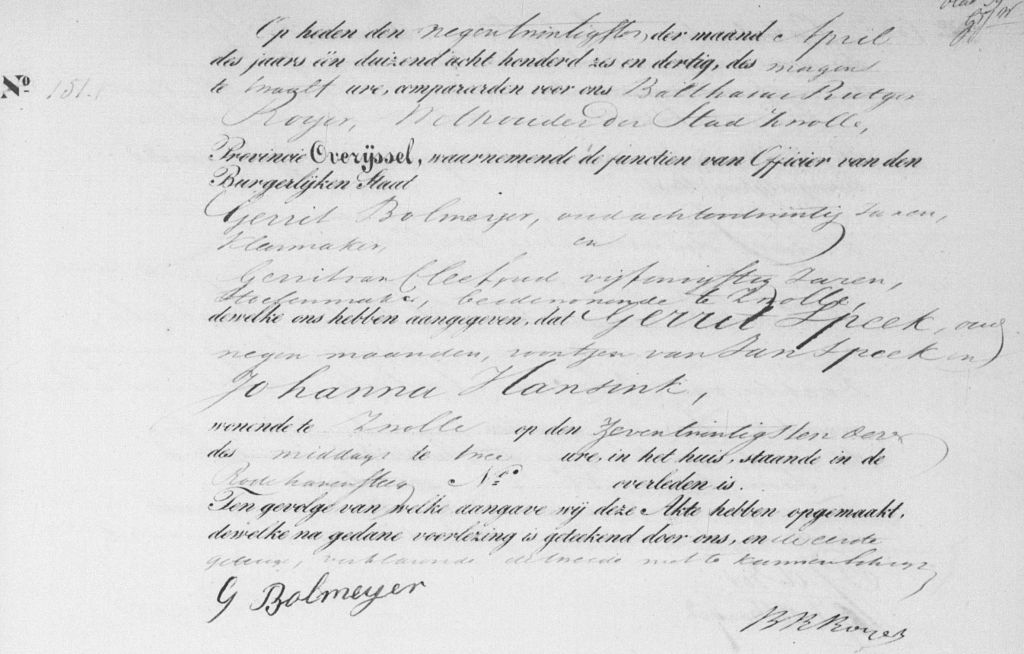 Op heden den negentwintigsten, der maand April
des jaars een duizend acht honderd zes en dertig, des morgens
N.º 151. te twaalf ure, compareerden voor ons Balthasar Rutger
Royer, Wethouder der Stad Zwolle,
Provincie Overijssel, waarnemende de functien van Officier van den
Burgerlijken Staat
Gerrit Bolmeijer, oud achtentwintig Jaren,
Kleermaker, en
Gerrit van Cleef, oud vijfenvijftig Jaren,
beide wonende te Zwolle,
dewelke ons hebben aangegeven, dat Gerrit Speek, oud
negen maanden, zoontjen van Jan Speek en
Johanna Hansink,
wonende te Zwolle op den Zevententwintigsten dezer
des middags te twee ure, in het huis, staande in de
Roode haven steeg N.º overleden is.
Ten gevolge van welke aangave wij deze Akte hebben opgemaakt,
dewelke na gedane voorlezing is geteekend door ons, en de eerste
getuige, verklarende de tweede niet te kunnen schrijven
G Bolmeyer
B R Royer